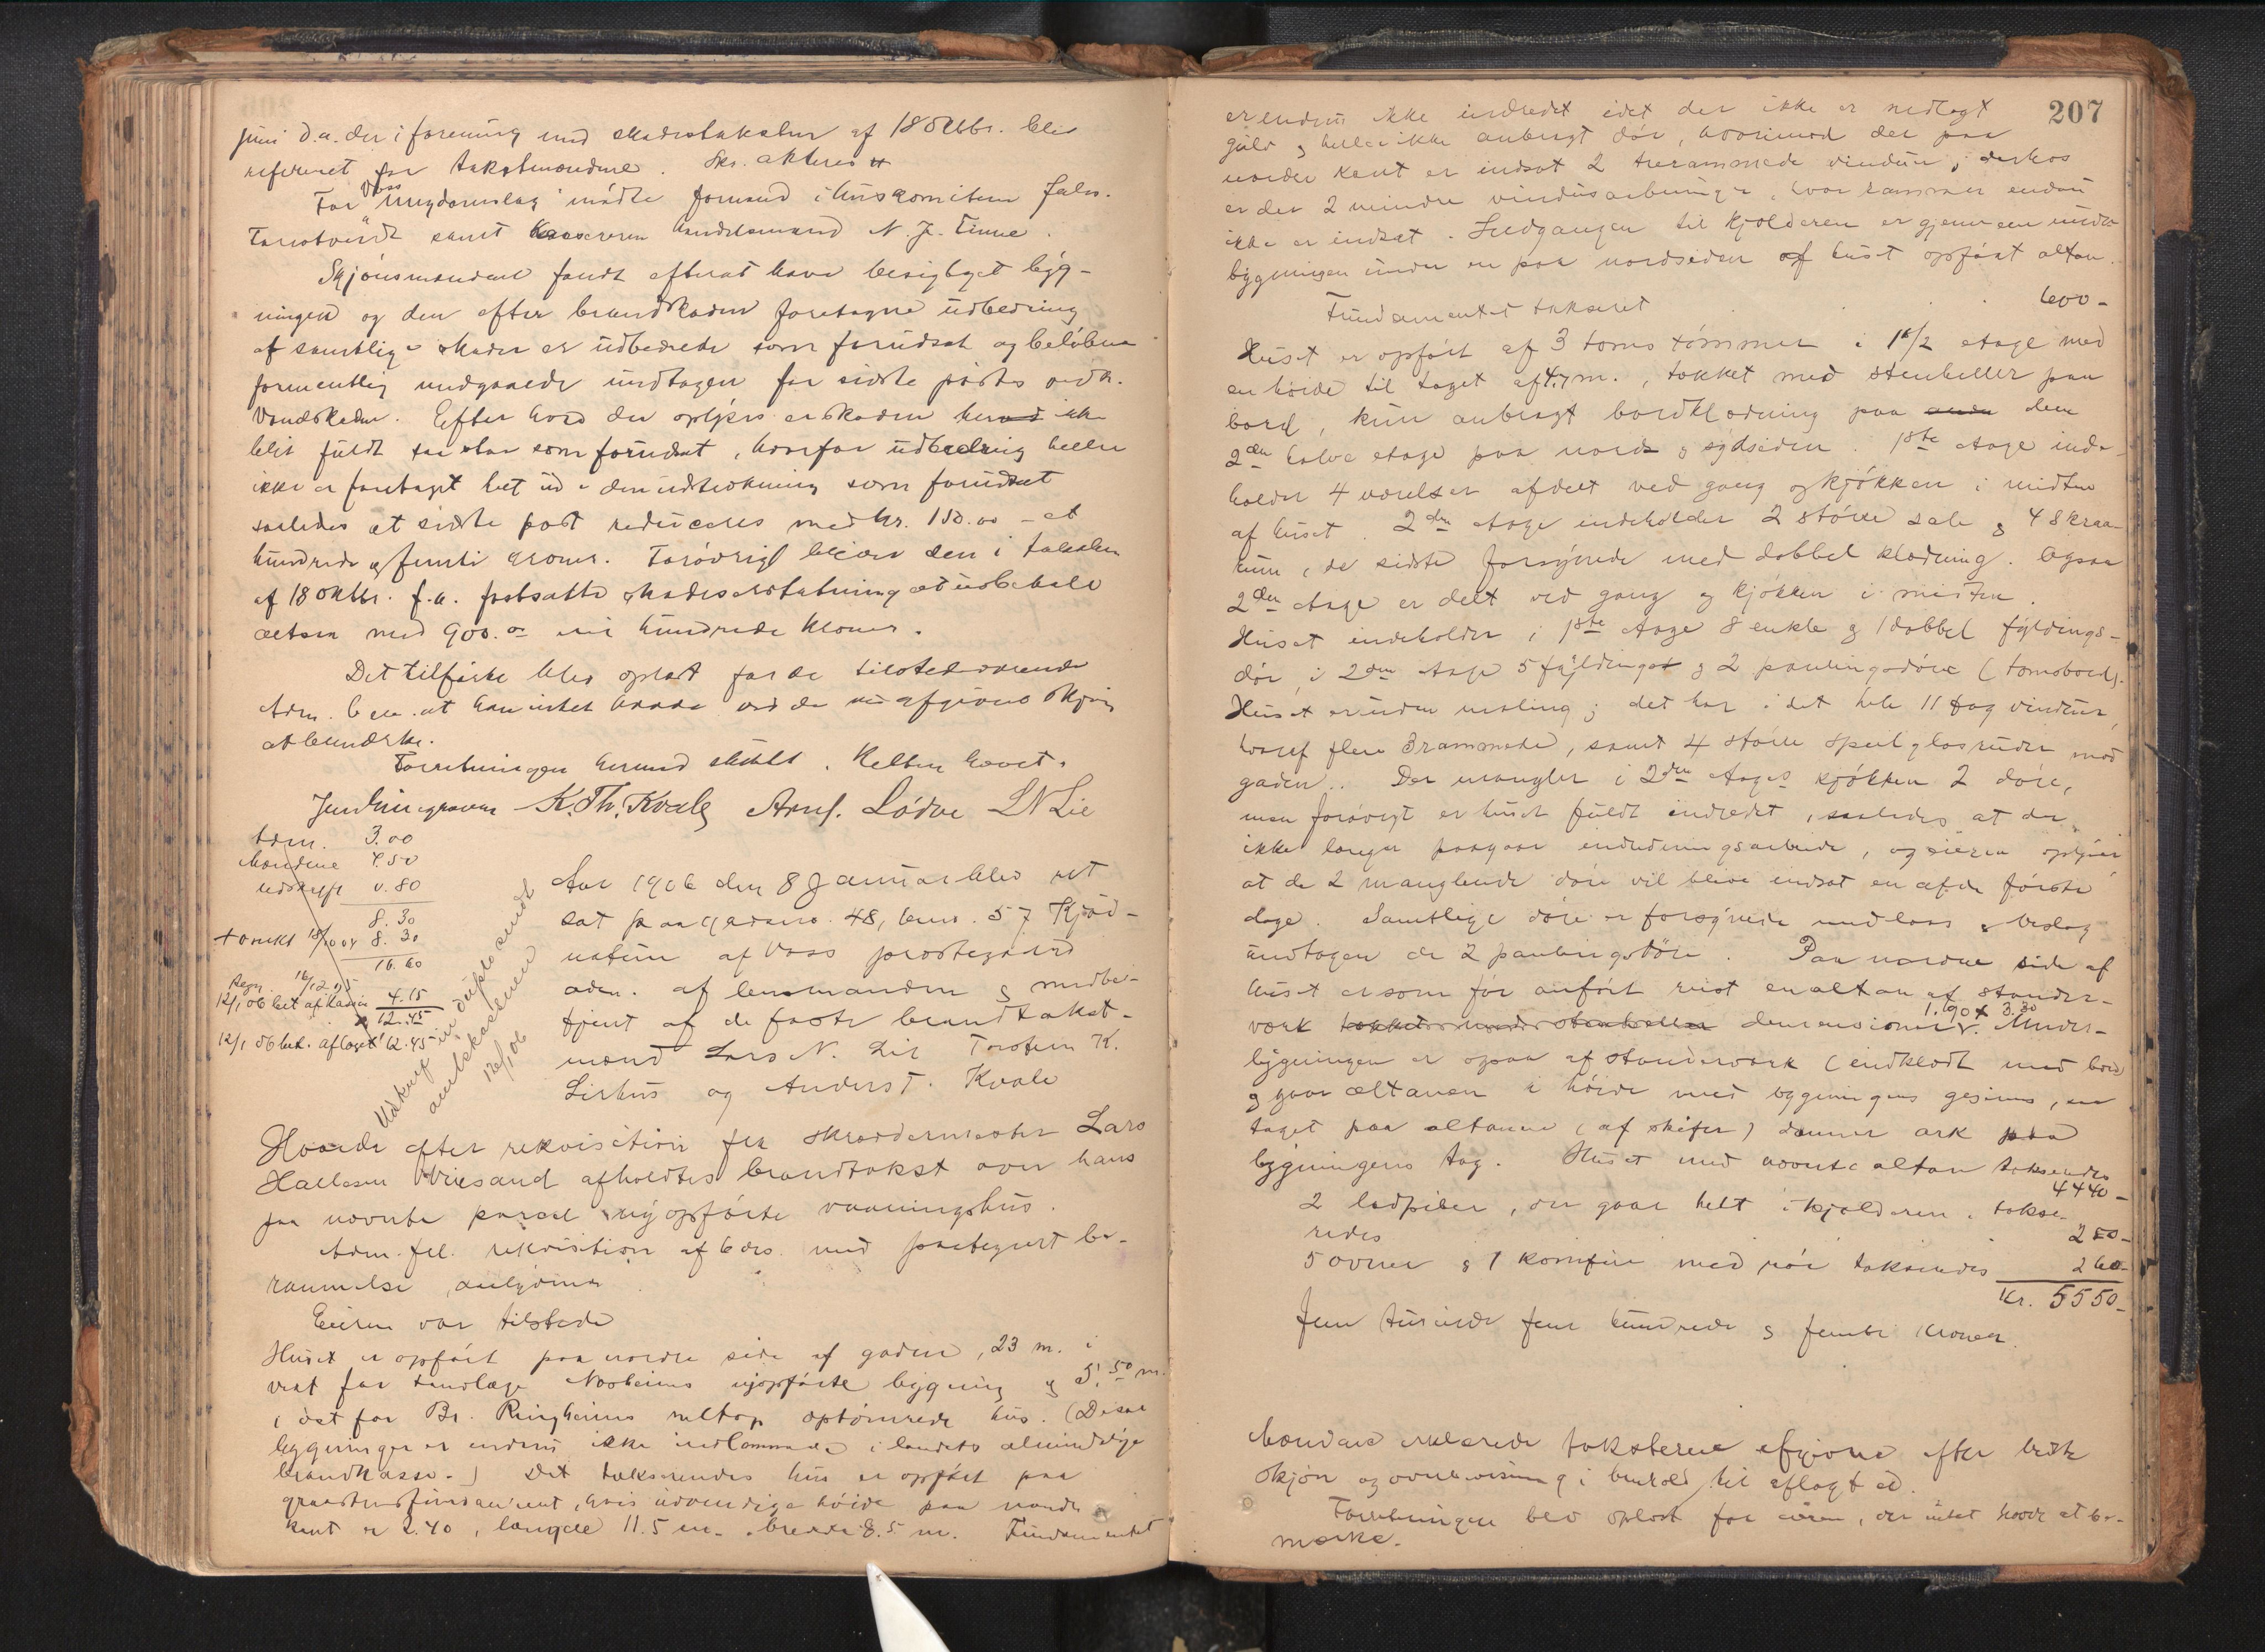 juni d.a. der i forening med skadestaksten af 18 oktbr. blev
refereret for takstmændene. Skr. akteres
For Voss Ungdomslag mødte formand i huskomiteen Johs.
Tarvotveidt samt kassereren handelsmand N. Js. Finne.
Skjønsmændene fandt efterat have besigtiget byg-
ningen og den efter brandskaden foretagne udbedring
at samtlige skader er udbedrede som forudsat og beløbene
formentlig medgaaede undtagen for sidste posts vedk.
Vandskaden. Efter hvad der oplyses er skaden ikke
blit fuldt saa stor som forudsat, hvorfor udbedring heller
ikke er foretaget helt ud i den udstrækning som forudsat
saaledes at sidste post reduceres med kr. 150.00 - et
hundrede og femti kroner. Forøvrigt bliver den i taksten
af 18 oktbr. f.a. fastsatte skadeserstatning at udbetale
altsaa med 900.00 ni hundrede kroner.
Det tilførte blev oplæst for de tilstedeværende
Adm. bem. at han intet havde ved de nu afgivne skjøn
at bemærke.
Forretningen hermed sluttet. Retten hævet.
K. Th. Kvale Arnf. Lødve LN Lie
Adm. 3.00
Mændene 4.50
Udskrift 0.80
8.30
+ omkt 18/10 04 8.30
16.60
Regn. 16/12 05
12/1 06 bet af kassen 4.15
12.45
12/1 06 bet. af laget 12.45
Udskrift in duplo sendt
amtskassereren
12/1 06
Aar 1906 den 8 januar blev ret
sat paa gaardsno. 48, bno. 57 Kjød-
natun af Voss prestegaard
adm. af lensmanden og medbe-
tjent af de faste brandtakst-
mænd Lars N. Lie Torstein K.
Lirhus og Anders T. Kvale
Hvorda efter rekvisition fra skræddermester Lars
Hallesen Vinsand afholdtes brandtakst over hans
paa nævnte parcel nyopførte vaaningshus.
Adm. frl. rekvisition af 6 ds. med paategnet be-
rammelse,
Eieren var tilstede
Huset er opført paa nordre side af gaden, 23 m. i
vest for tandlæge Nesheims nyopførte bygning og 5.50 m.
i øst for Br. Ringheims netop optømrede hus. (Disse
bygninger er endnu ikke indlemmede i landets almindelige
brandkasse.) Det takserendes hus er opført paa
graastensfundament, hvis udvendige høide paa nordre
kant er 2.40, længde 11.5 m. bredde 8.5 m. Fundamentet
207
er endnu ikke indredet idet der ikke er nedlagt
gulv og heller ikke anbragt dør, hvorimod der paa
nordre kant er indsat 2 trerammede vinduer; derhos
er der 2 mindre vindusaabninger, hvor rammer endnu
ikke er indsat. Indgangen til kjelderen er gjennem under-
bygningen under en paa nordsiden af huset opført altan.
Fundamentet takseret 600 -
Huset er opført af 3 toms tømmer i 1 1/2 etage med
en høide til taget af 4.7 m., tækket med stenheller paa
bord, kun anbragt bordklædning paa den
2den halve etage paa nord og sydsiden. 1ste etage inde-
holder 4 værelser afdelt ved gang og kjøkken i midten
af huset. 2den etage indeholder 2 større sale og 4 skraa-
rum, de sidste forsynede med dobbel klædning. Ogsaa
2den etage er delt ved gang og kjøkken i midten.
Huset indeholder i 1ste etage 8 enkle og 1 dobbel fyldings-
dør, i 2den etage 5 fyldings og 2 panlingsdøre (tomsbord).
Huset er uden maling; det har i det hele 11 fag vinduer,
hvoraf flere 3rammede, samt 4 store speilglasruder mod
gaden. Der mangler i 2den etages kjøkken 2 døre,
men forøvrigt er huset fuldt indredet, saaledes at der
ikke længer paagaar indredningsarbeide, og eieren oplyser
at de 2 manglende døre vil blive indsat en af de første
dage. Samtlige døre er forsynede med laas og beslag
undtagen de 2 panlingsdøre. Paa nordre side af
huset er som før anført reist en altan af stander-
værk tækket med stenheller dimensioner 1.90 x 3.30. Under-
bygningen er ogsaa af standerværk (indklædt med bord
og gaar altanen i høide med bygningens gesims, en
taget paa altanen (af skifer) danner ark paa
bygningens tag. Huset med nævnte altan takseredes
4440 -
2 ladpiber, der gaar helt i kjelderen, takse-
redes 250 -
5 ovner og 1 komfur med rør takseredes 260 -
Kr. 5550 -
Fem tusinde fem hundrede og femti kroner.
Mændene erklærede taksterne afgivne efter bedste
skjøn og overbevisning i henhold til aflagt ed.
Forretningen blev oplæst for eieren, der intet havde at be-
merke.